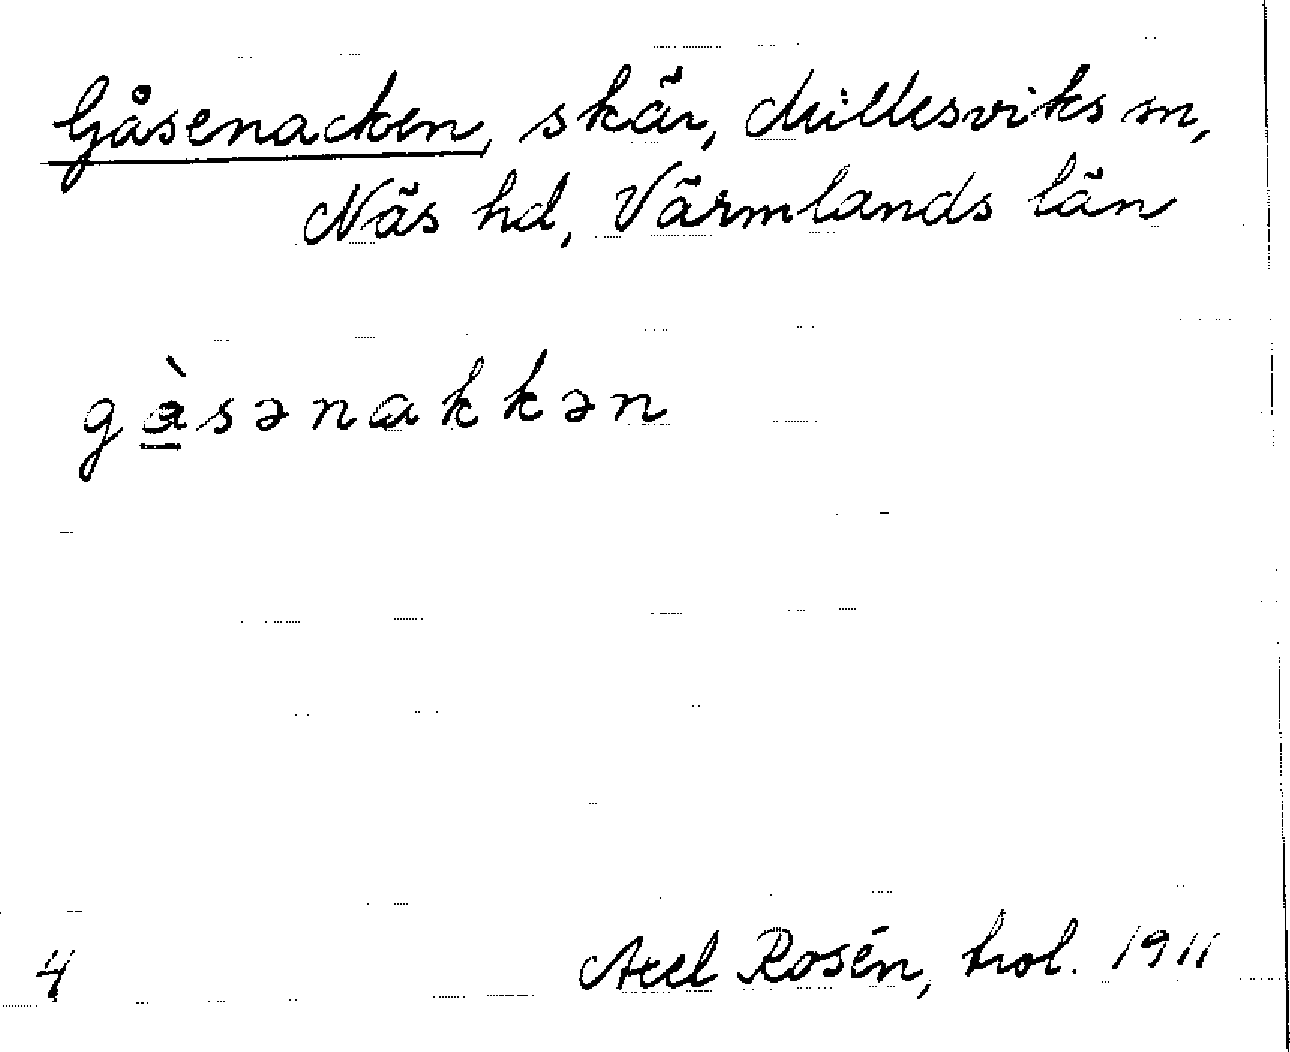 Gåsenacken, skär, Millesviks sn,
Näs hd, Värmlands län
gàsənakkən
4
Axel Rosén, trol. 1911